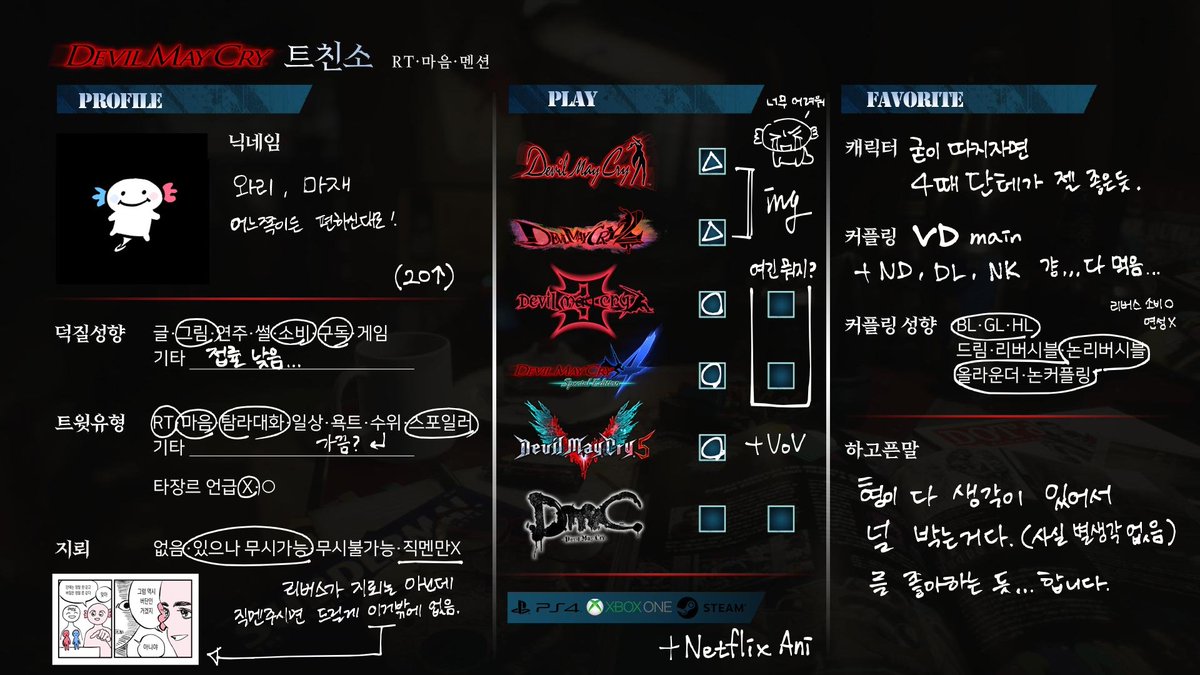 DEVIL MAY CRY 트친소 RT·마음·멘션
PROFILE
닉네임
와리, 마재
어느쪽이든 편하신대로!
(20↑)
덕질성향 글·그림·연주·썰·소비·구독·게임
기타 접률 낮음...
트윗유형 RT·마음·탐라대화·일상·욕트·수위·스포일러
가끔?
기타
타장르 언급 X·O
지뢰 없음·있으나 무시가능·무시불가능·직멘만X
리버스가 지뢰는 아닌데
직멘주시면 드릴게 이거밖에 없음.
그럼 역시
버단인
거겠지
아니야
PLAY
너무 어려워
Devil May Cry
DEVIL MAY CRY 2
ing
여긴 뭐지?
Devil May Cry
DEVIL MAY CRY 4
Special Edition
Devil May Cry 5
+VoV
DmC
Devil May Cry
PS4 XBOX ONE STEAM
+Netflix Ani
FAVORITE
캐릭터 굳이 따지자면
4때 단테가 젤 좋은듯.
커플링 VD main
+ ND, DL, NK 걍,,,다 먹음...
리버스 소비O
연성X
커플링 성향 BL·GL·HL
드림·리버시블·논리버시블
올라운더·논커플링
하고픈말
형이 다 생각이 있어서
널 박는거다.(사실 별생각 없음)
를 좋아하는 듯,,,합니다.